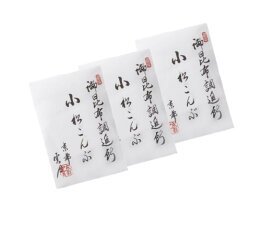 御昆布調進所
小松こんぶ
京都
雲月
御昆布調進所
小松こんぶ
御昆布調進所
小松こんぶ
京都